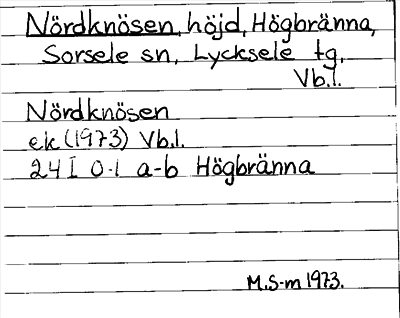 Nördknösen, höjd, Högbränna,
Sorsele sn, Lycksele tg,
Vb.l.
Nördknösen
ek (1973) Vb.l.
24 I 0-1 a-b Högbränna
M.S-m 1973.